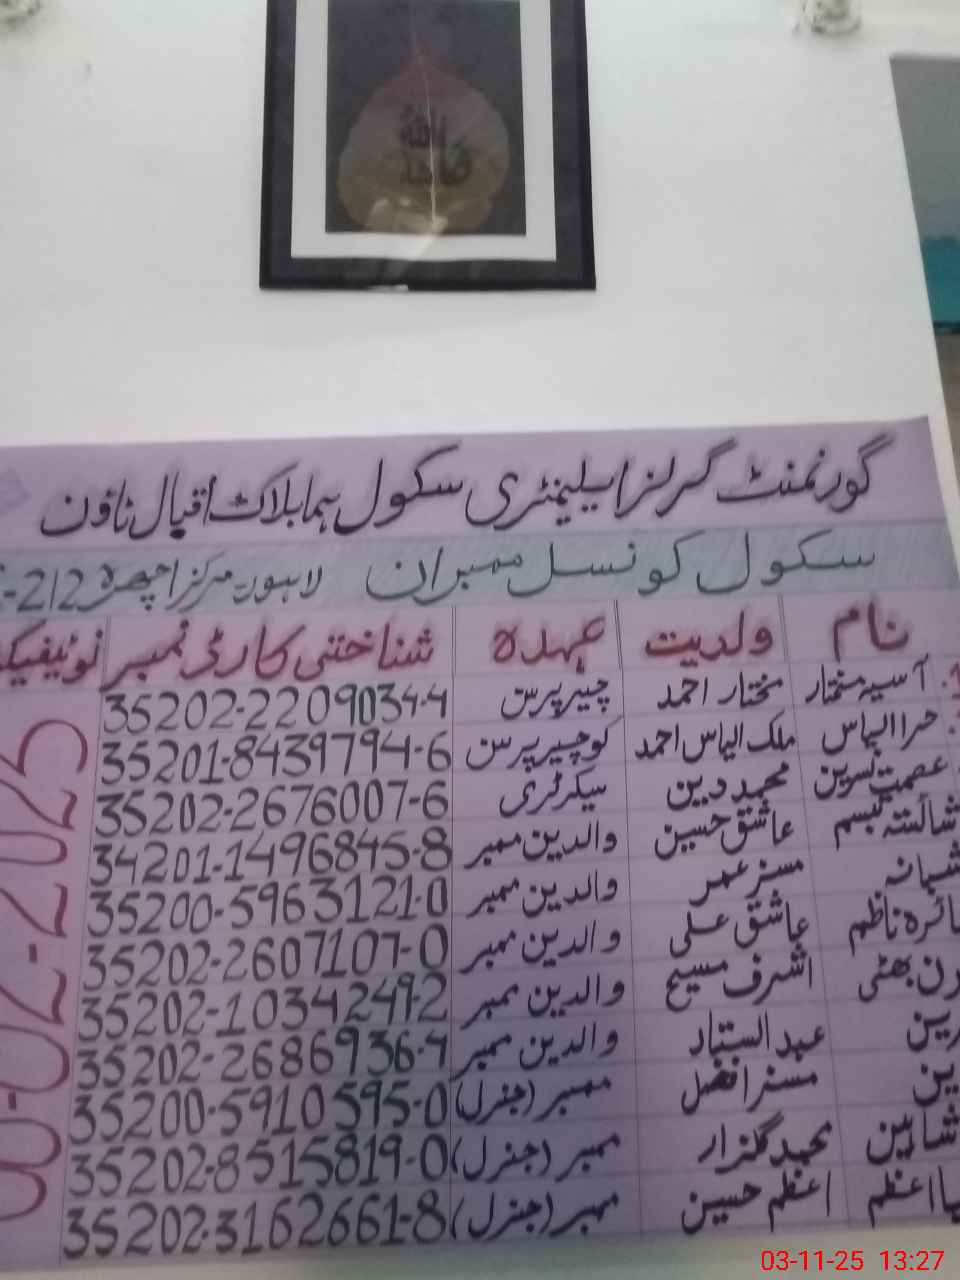 الله
گورنمنٹ گرلز ایلیمنٹری سکول ہما بلاک اقبال ٹاؤن
سکول کونسل ممبران لاہور مرکز اچھرہ 212-
نام ولدیت عہدہ شناختی کارڈ نمبر نوٹیفیک
آسیہ مختار مختار احمد چیئرپرسن 35202-2209034-4
حرا الیاس ملک الیاس احمد کو چیئرپرسن 35201-8439794-6
عصمت نسرین محمد دین سیکرٹری 35202-2676007-6
شائستہ تبسم عاشق حسین والدین ممبر 34201-1496845-8
شبانہ مسز عمر والدین ممبر 35200-5963121-0
ائرہ ناظم عاشق علی والدین ممبر 35202-2607107-0
رن بھٹی اشرف مسیح والدین ممبر 35202-1034249-2
رین عبدالستار والدین ممبر 35202-2686936-4
ین مسز افضل ممبر (جنرل) 35200-5910595-0
شاہین محمد گلزار ممبر (جنرل) 35202-8515819-0
یا اعظم اعظم حسین ممبر (جنرل) 35202-3162661-8
-02-2025
03-11-25 13:27